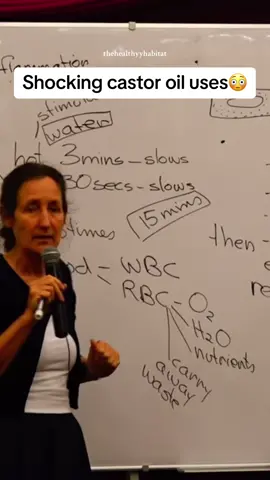 thehealthyyhabitat
Shocking castor oil uses😳
water
hot 3mins - slows
30secs - slows
15 mins
times
then -
WBC
RBC - O2
H2O
nutrients
carry
away
waste